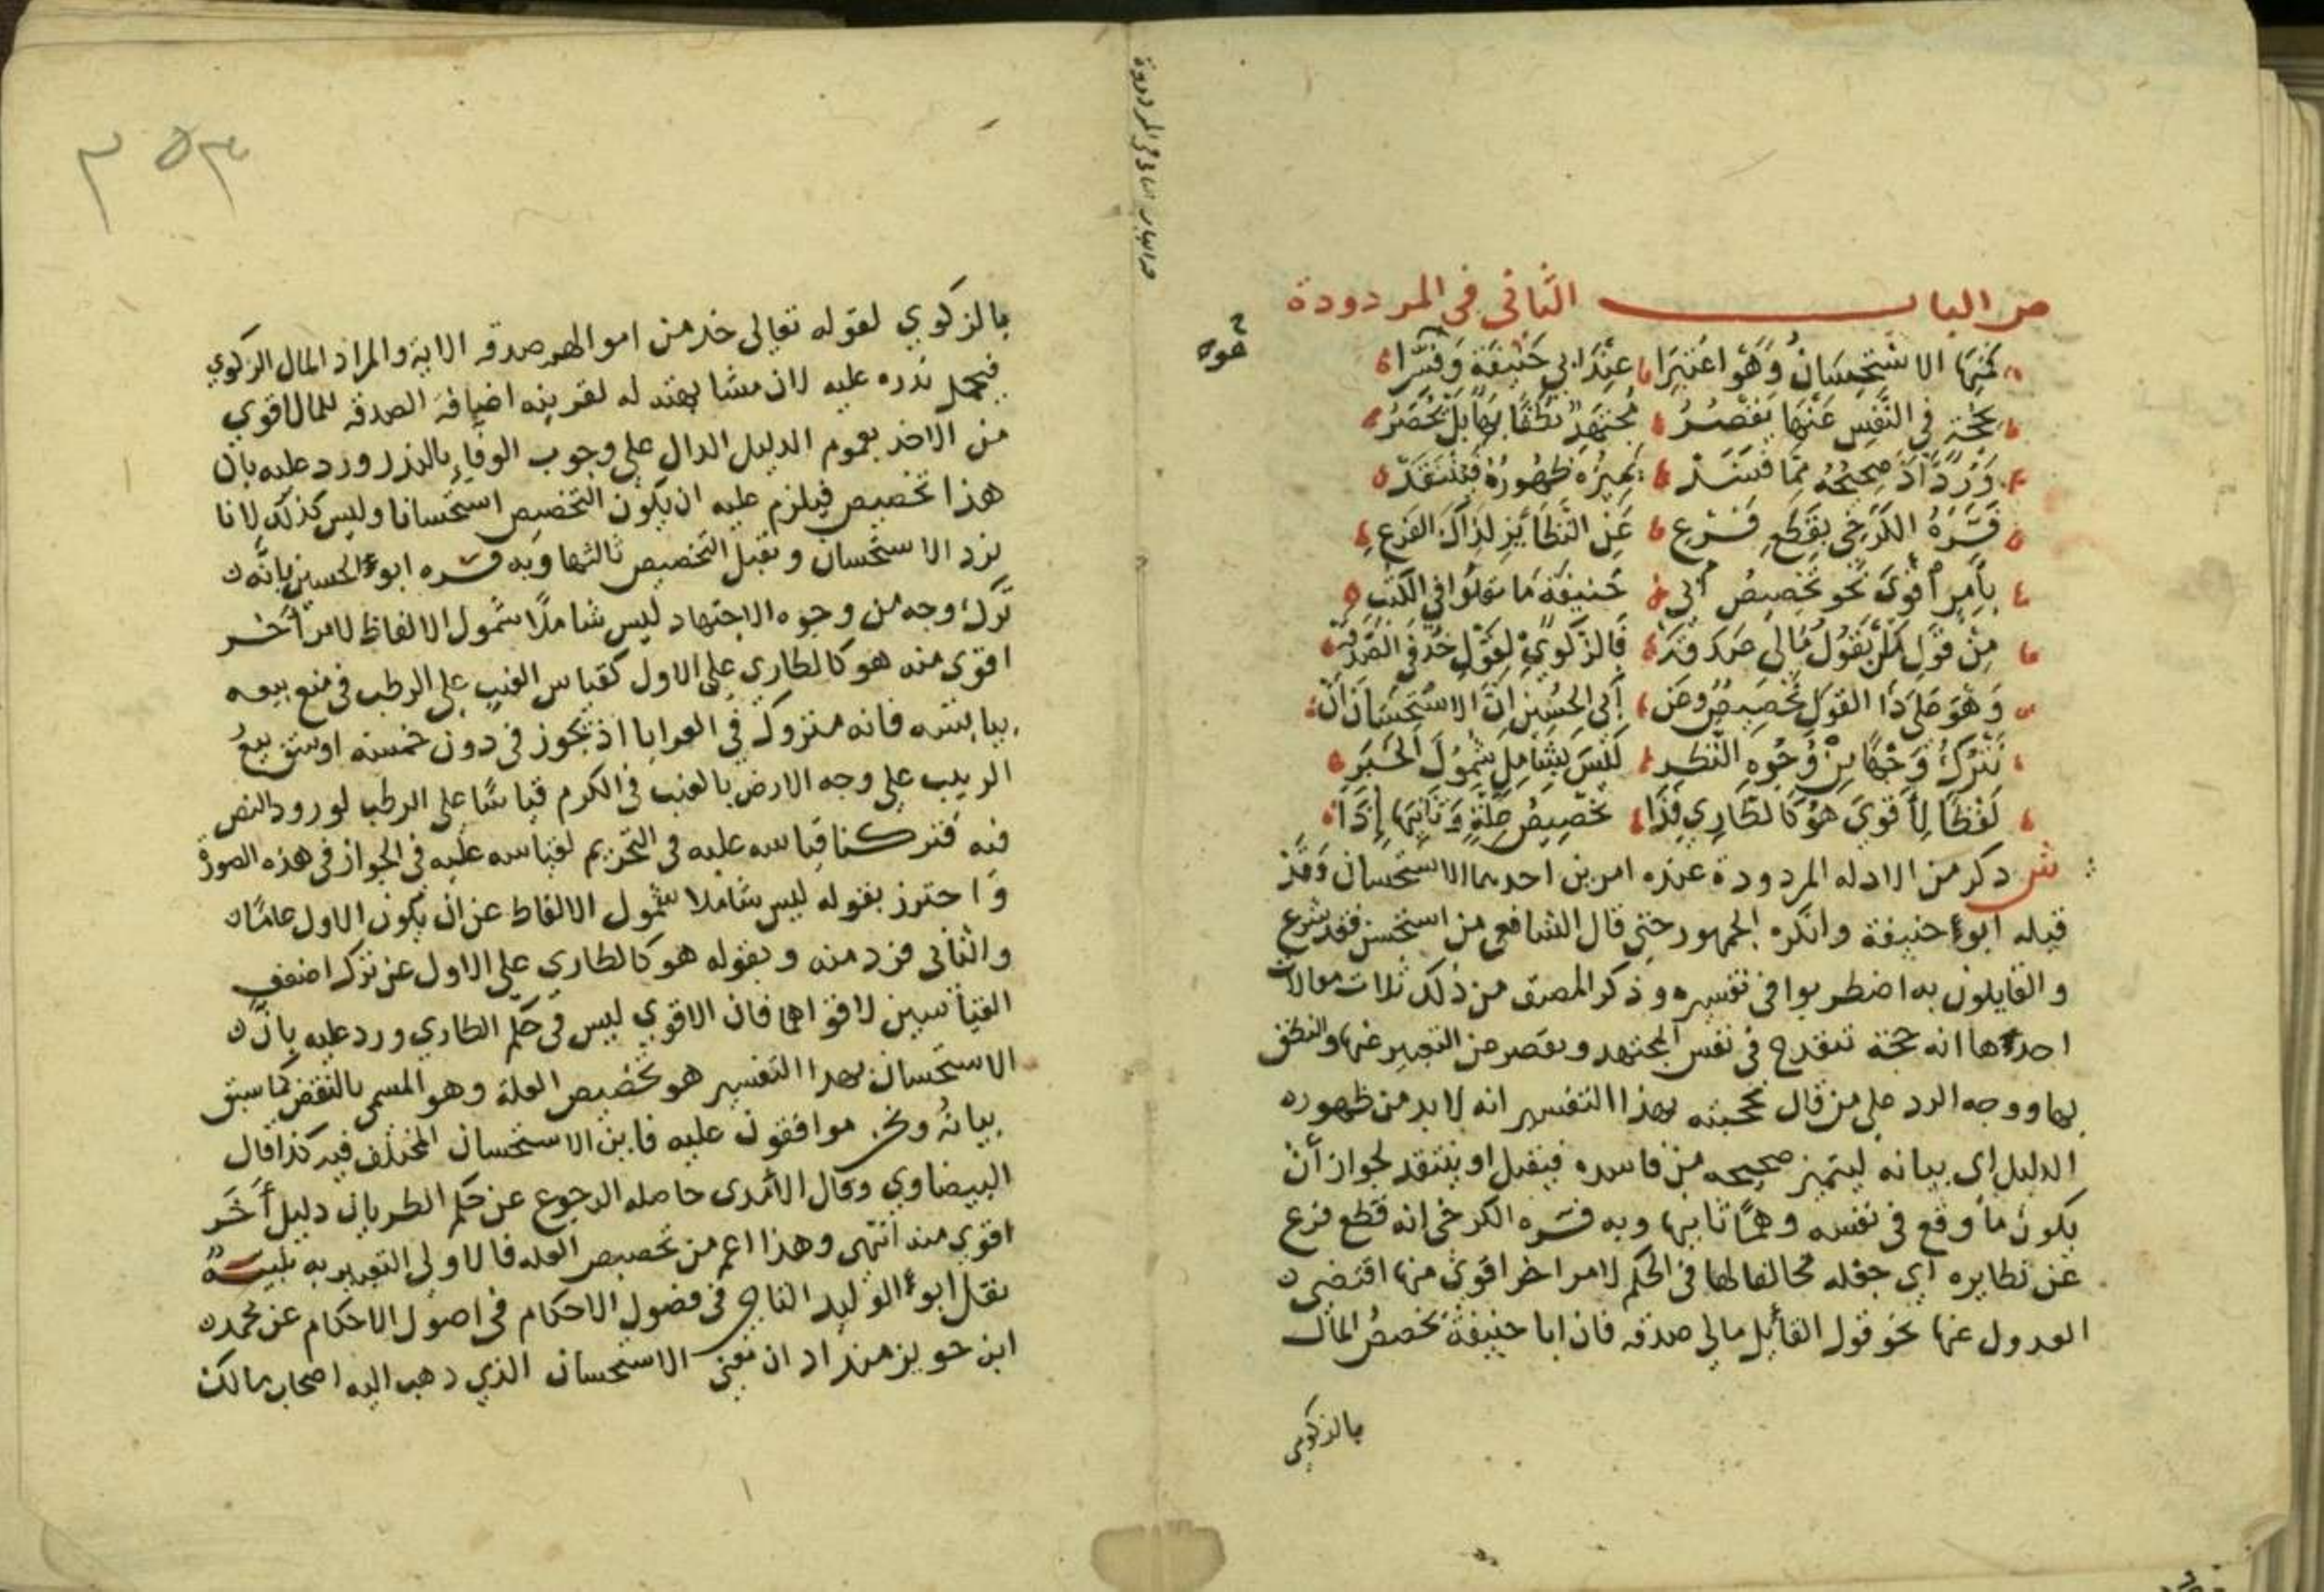 ص الباب الثاني في المردودة
كمنها الاستحسان وهو اعتبرا عند ابي حنيفة وفسرا
بحجة في النفس عنها يقصر مجتهد نطقا بها بل تحصر
ورد اذ صحيحه مما فسد تميزه ظهوره فينتقد
فسره الكرخي بقطع فرع عن النظائر لذاك الفرع
بامر اقوى نحو تخصيص ابي حنيفة ما نقلوا في الكتب
من قول من يقول مالي صدقة فالزكوي لقول خذ في الصدقة
وهو على ذا القول تخصيص وعن ابي الحسين ان الاستحسان ان
نترك وجها من وجوه النظر ليس بشامل شمول الخبر
لفظا لاقوى هو كالطاري فذا تخصيص علة وثانيها إذا
ش ذكر من الادله المردودة عنده امرين احدهما الاستحسان وقد
قبله ابو حنيفة وانكره الجمهور حتى قال الشافعي من استحسن فقد شرع
والقايلون به اضطربوا في تفسيره وذكر المصنف من ذلك ثلاث مقالات
احدها انه حجة تنقدح في نفس المجتهد وتقصر عن التعبير عنها والنطق
بها ووجه الرد على من قال بحجيته بهذا التفسير انه لا بد من ظهوره
الدليل اي بيانه ليتميز صحيحه من فاسده فيقبل او ينتقد لجواز أن
يكون ما وقع في نفسه وهمًا ثانيها وبه فسره الكرخي انه قطع فرع
عن نظايره اي جعله مخالفا لها في الحكم لامر اخر اقوى منها اقتضى
العدول عنها نحو قول القائل مالي صدقه فان ابا حنيفة تخصص المال
بالزكوي
والباب الثاني في المردودة
٣٥٣
بالزكوي لقوله تعالى خذ من اموالهم صدقه الاية والمراد المال الزكوي
فيحمل نذره عليه لان مشابهته له لقرينه اضافة الصدقه للمال اقوي
من الاخذ بعموم الدليل الدال على وجوب الوفاء بالنذر ورد عليه بان
هذا تخصيص فيلزم عليه ان يكون التخصيص استحسانا وليس كذلك لانا
نرد الاستحسان ونقبل التخصيص ثالثها وبه فسره ابو الحسين بانه
ترك وجه من وجوه الاجتهاد ليس شاملًا شمول الالفاظ لامر أخر
اقوى منه هو كالطاري على الاول كقياس العنب على الرطب في منع بيعه
بيابسه فانه متروك في العرايا اذ تجوز في دون خمسة اوسق بيع
الزبيب على وجه الارض بالعنب في الكرم قياسًا على الرطب لورود النص
فيه فتركنا قياسه عليه في التحريم لقياسه عليه في الجواز في هذه الصورة
واحترز بقوله ليس شاملا شمول الالفاظ عن ان يكون الاول عامًا
والثاني فرد منه وبقوله هو كالطاري على الاول عن ترك اضعف
القياسين لاقواهما فان الاقوي ليس في حكم الطاري ورد عليه بان
الاستحسان بهذا التفسير هو تخصيص العلة وهو المسمى بالنقض كما سبق
بيانه ونحن موافقون عليه فاين الاستحسان المختلف فيه كذا قال
البيضاوي وقال الآمدي حاصله الرجوع عن حكم الطريان دليل أخر
اقوي منه انتهى وهذا اعم من تخصيص العله فالاولى التعبير به تنبيه
نقل ابو الوليد الباجي في فصول الاحكام في اصول الاحكام عن محمد
ابن خويز منداد ان معنى الاستحسان الذي ذهب اليه اصحاب مالك